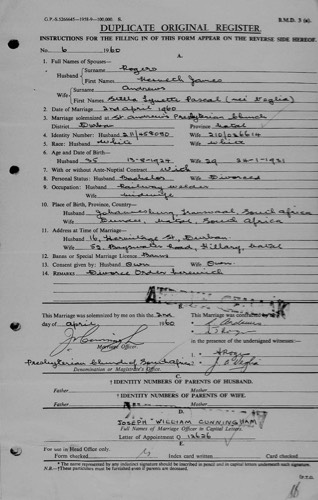 G.P.-S.1266645—1958-9—100,000. S. B.M.D. 3 (a).
DUPLICATE ORIGINAL REGISTER
INSTRUCTIONS FOR THE FILLING IN OF THIS FORM APPEAR ON THE REVERSE SIDE HEREOF.
No. 6 /1960
A.
1. Full Names of Spouses:
Surname Rogers
Husband
First Names Kenneth James
Surname Andrews
Wife
First Names Stella Lynette Pascal (nei Veglia)
2. Date of Marriage: 2nd April 1960
3. Marriage solemnized at St Andrew's Presbyterian Church
District Durban Province Natal
4. Identity Number: Husband 211/458090 Wife 210/026614
5. Race: Husband White Wife White
6. Age and Date of Birth:
Husband 35 13-8-1924 Wife 29 24-1-1931
7. With or without Ante-Nuptial Contract With
8. Personal Status: Husband Bachelor Wife Divorced
9. Occupation: Husband Railway welder
Wife midwife
10. Place of Birth, Province, Country:
Husband Johannesburg, Transvaal, South Africa
Wife Dundee, Natal, South Africa
11. Address at Time of Marriage:
Husband 16, Hermitage St, Durban
Wife 52, Road, Hillary, Natal
12. Banns or Special Marriage Licence Banns
13. Consent given by: Husband Own Wife Own
14. REMARKS Divorce Order herewith
This Marriage was solemnized by me on this the 2nd
day of April 1960
Marriage Officer.
Presbyterian Church of South Africa
Denomination or Magistrate's Office.
This Marriage was contracted by us
in the presence of the undersigned witnesses:
B.
† IDENTITY NUMBERS OF PARENTS OF HUSBAND.
Father Mother
† IDENTITY NUMBERS OF PARENTS OF WIFE.
Father Mother
D.
JOSEPH WILLIAM CUNNINGHAM
Full Names of Marriage Officer in Capital Letters.
Letter of Appointment Q 12626
E.
For use in Head Office only.
Form checked Index card written Card checked
*The name represented by any indistinct signature should be inscribed in pencil and in capital letters underneath such signature.
N.B.—†These particulars must be furnished even if parents are deceased.
[P.T.O.
16